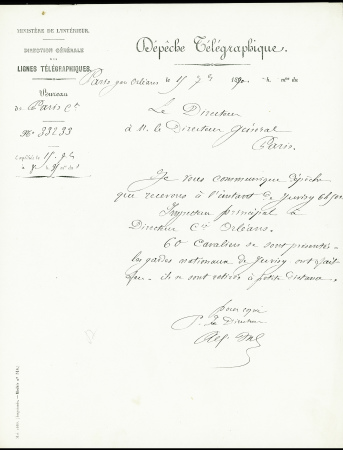 MINISTÈRE DE L'INTÉRIEUR.
DIRECTION GÉNÉRALE
DES
LIGNES TÉLÉGRAPHIQUES.
Bureau
de Paris Cal
No 33233
Dépêche Télégraphique.
Paris gare Orléans le 15 7bre 1870
Le Directeur
à M. le Directeur général
Paris.
Je vous communique dépêche
que recevons à l'instant de Juvisy
Inspecteur principal à
Directeur Cie Orléans.
60 Cavaliers se sont présentés
les gardes nationaux de Juvisy ont fait
feu. ils se sont retirés à petite distance.
pour copie
P. le Directeur